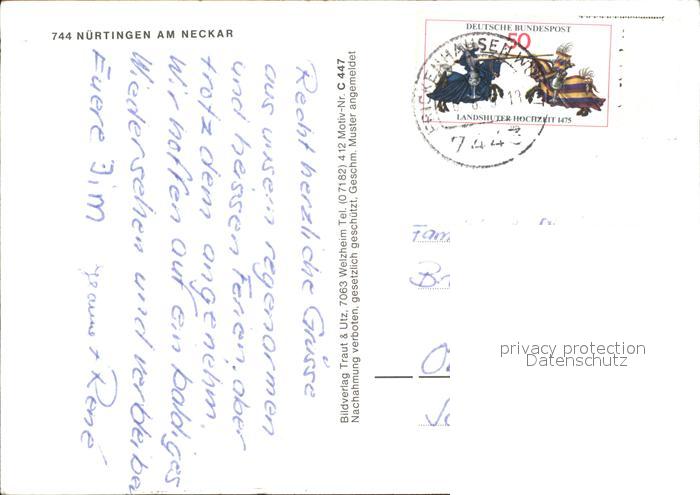 744 NÜRTINGEN AM NECKAR
Recht herzliche Grüsse
aus unsern regenarmen
und heissen Ferien, aber
trotz dem angenehm.
Wir hoffen auf ein baldiges
Wiedersehen und verbleiben
Euere
+ René
Bildverlag Traut & Utz, 7063 Welzheim Tel. (0 71 82) 412 Motiv-Nr. C 447
Nachahmung verboten, gesetzlich geschützt, Geschm. Muster angemeldet
DEUTSCHE BUNDESPOST
50
LANDSHUTER HOCHZEIT 1475
Fam
privacy protection
Datenschutz